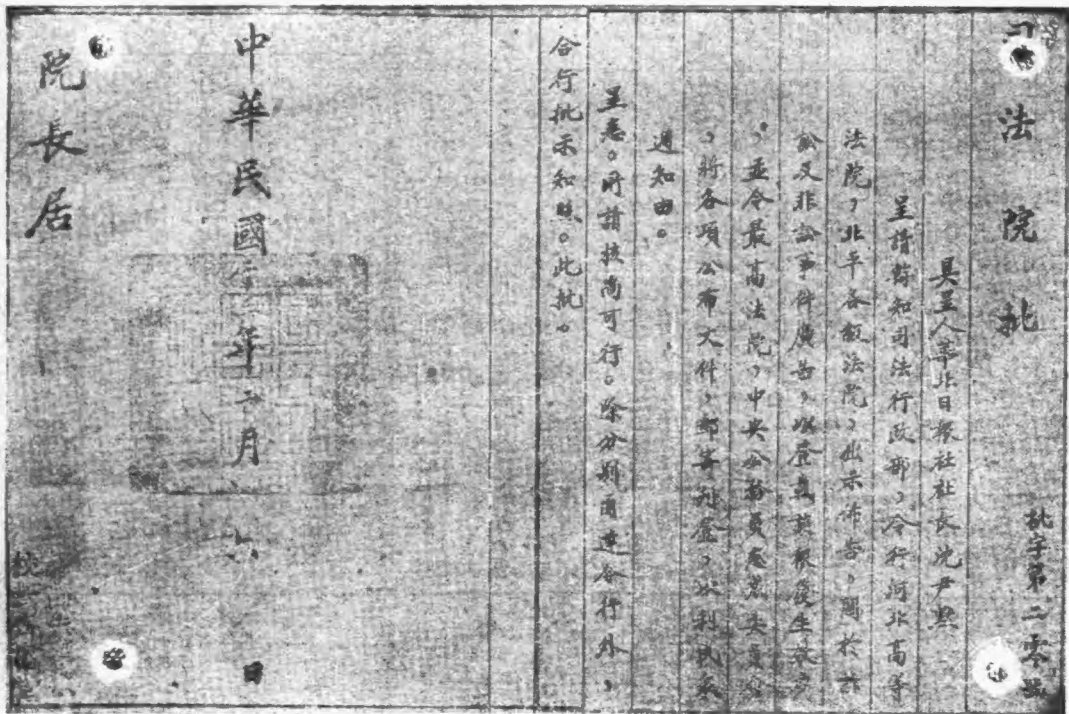 司法院批
批字第二零號
具呈人華北日報社社長沈尹默
呈請轉知司法行政部,令行河北高等
法院,北平各級法院,出示佈告,關於訴
訟及非訟事件廣告,以登載該報發生效力
,並令最高法院,中央公務員懲戒委員會
,將各項公布文件,郵寄刊登,以利民眾
週知由。
呈悉。所請核尚可行。除分別函達令行外,
合行批示知照。此批。
中華民國二年二月六日
院長居